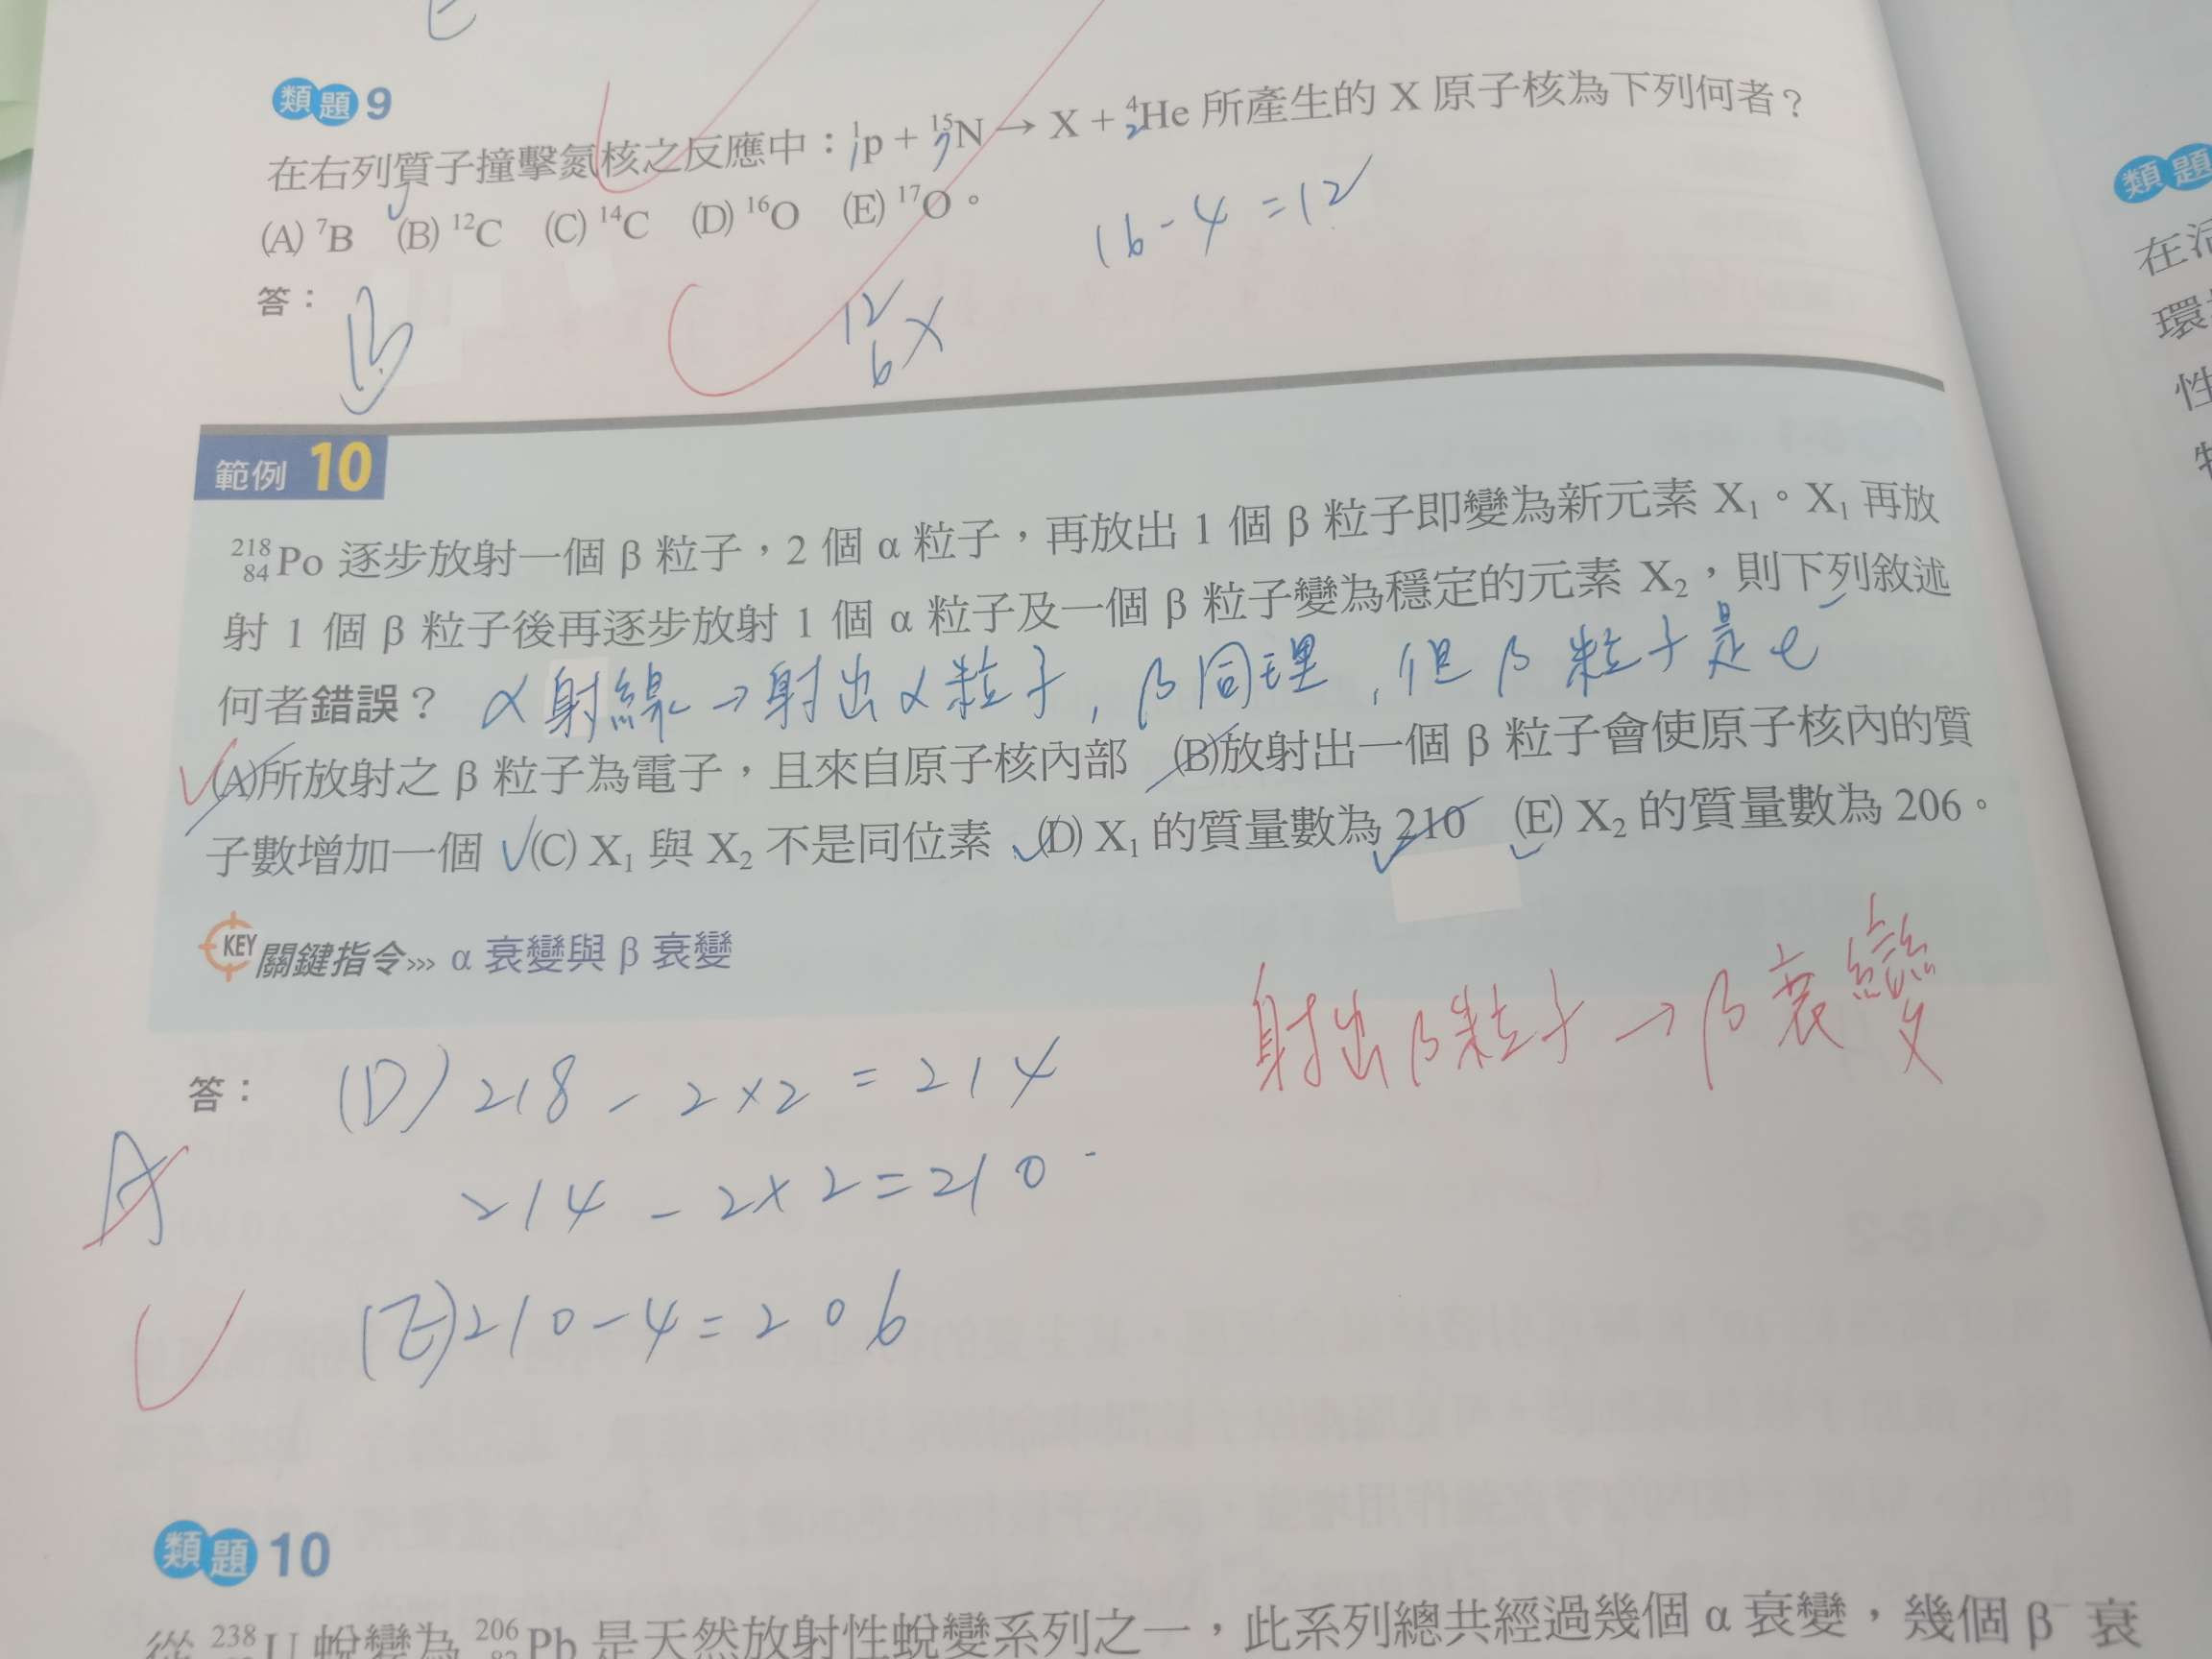 E
類題9
在右列質子撞擊氮核之反應中：¹₁p + ¹⁵₇N → X + ⁴₂He 所產生的 X 原子核為下列何者？
(A) ⁷B (B) ¹²C (C) ¹⁴C (D) ¹⁶O (E) ¹⁷O。
16-4=12
答：
B
¹²₆X
範例 10
²¹⁸₈₄Po 逐步放射一個 β 粒子，2 個 α 粒子，再放出 1 個 β 粒子即變為新元素 X₁。X₁ 再放
射 1 個 β 粒子後再逐步放射 1 個 α 粒子及一個 β 粒子變為穩定的元素 X₂，則下列敘述
何者錯誤？
α射線→射出α粒子，β同理，但β粒子是e
(A)所放射之 β 粒子為電子，且來自原子核內部 (B)放射出一個 β 粒子會使原子核內的質
子數增加一個 (C) X₁ 與 X₂ 不是同位素 (D) X₁ 的質量數為 210 (E) X₂ 的質量數為 206。
KEY 關鍵指令››› α 衰變與 β 衰變
射出β粒子→β衰變
答：
(D) 218-2×2=214
A
214-2×2=210
(E) 210-4=206
類題10
從 ²³⁸U 蛻變為 ²⁰⁶₈₂Pb 是天然放射性蛻變系列之一，此系列總共經過幾個 α 衰變，幾個 β⁻ 衰
類題
在
環
性